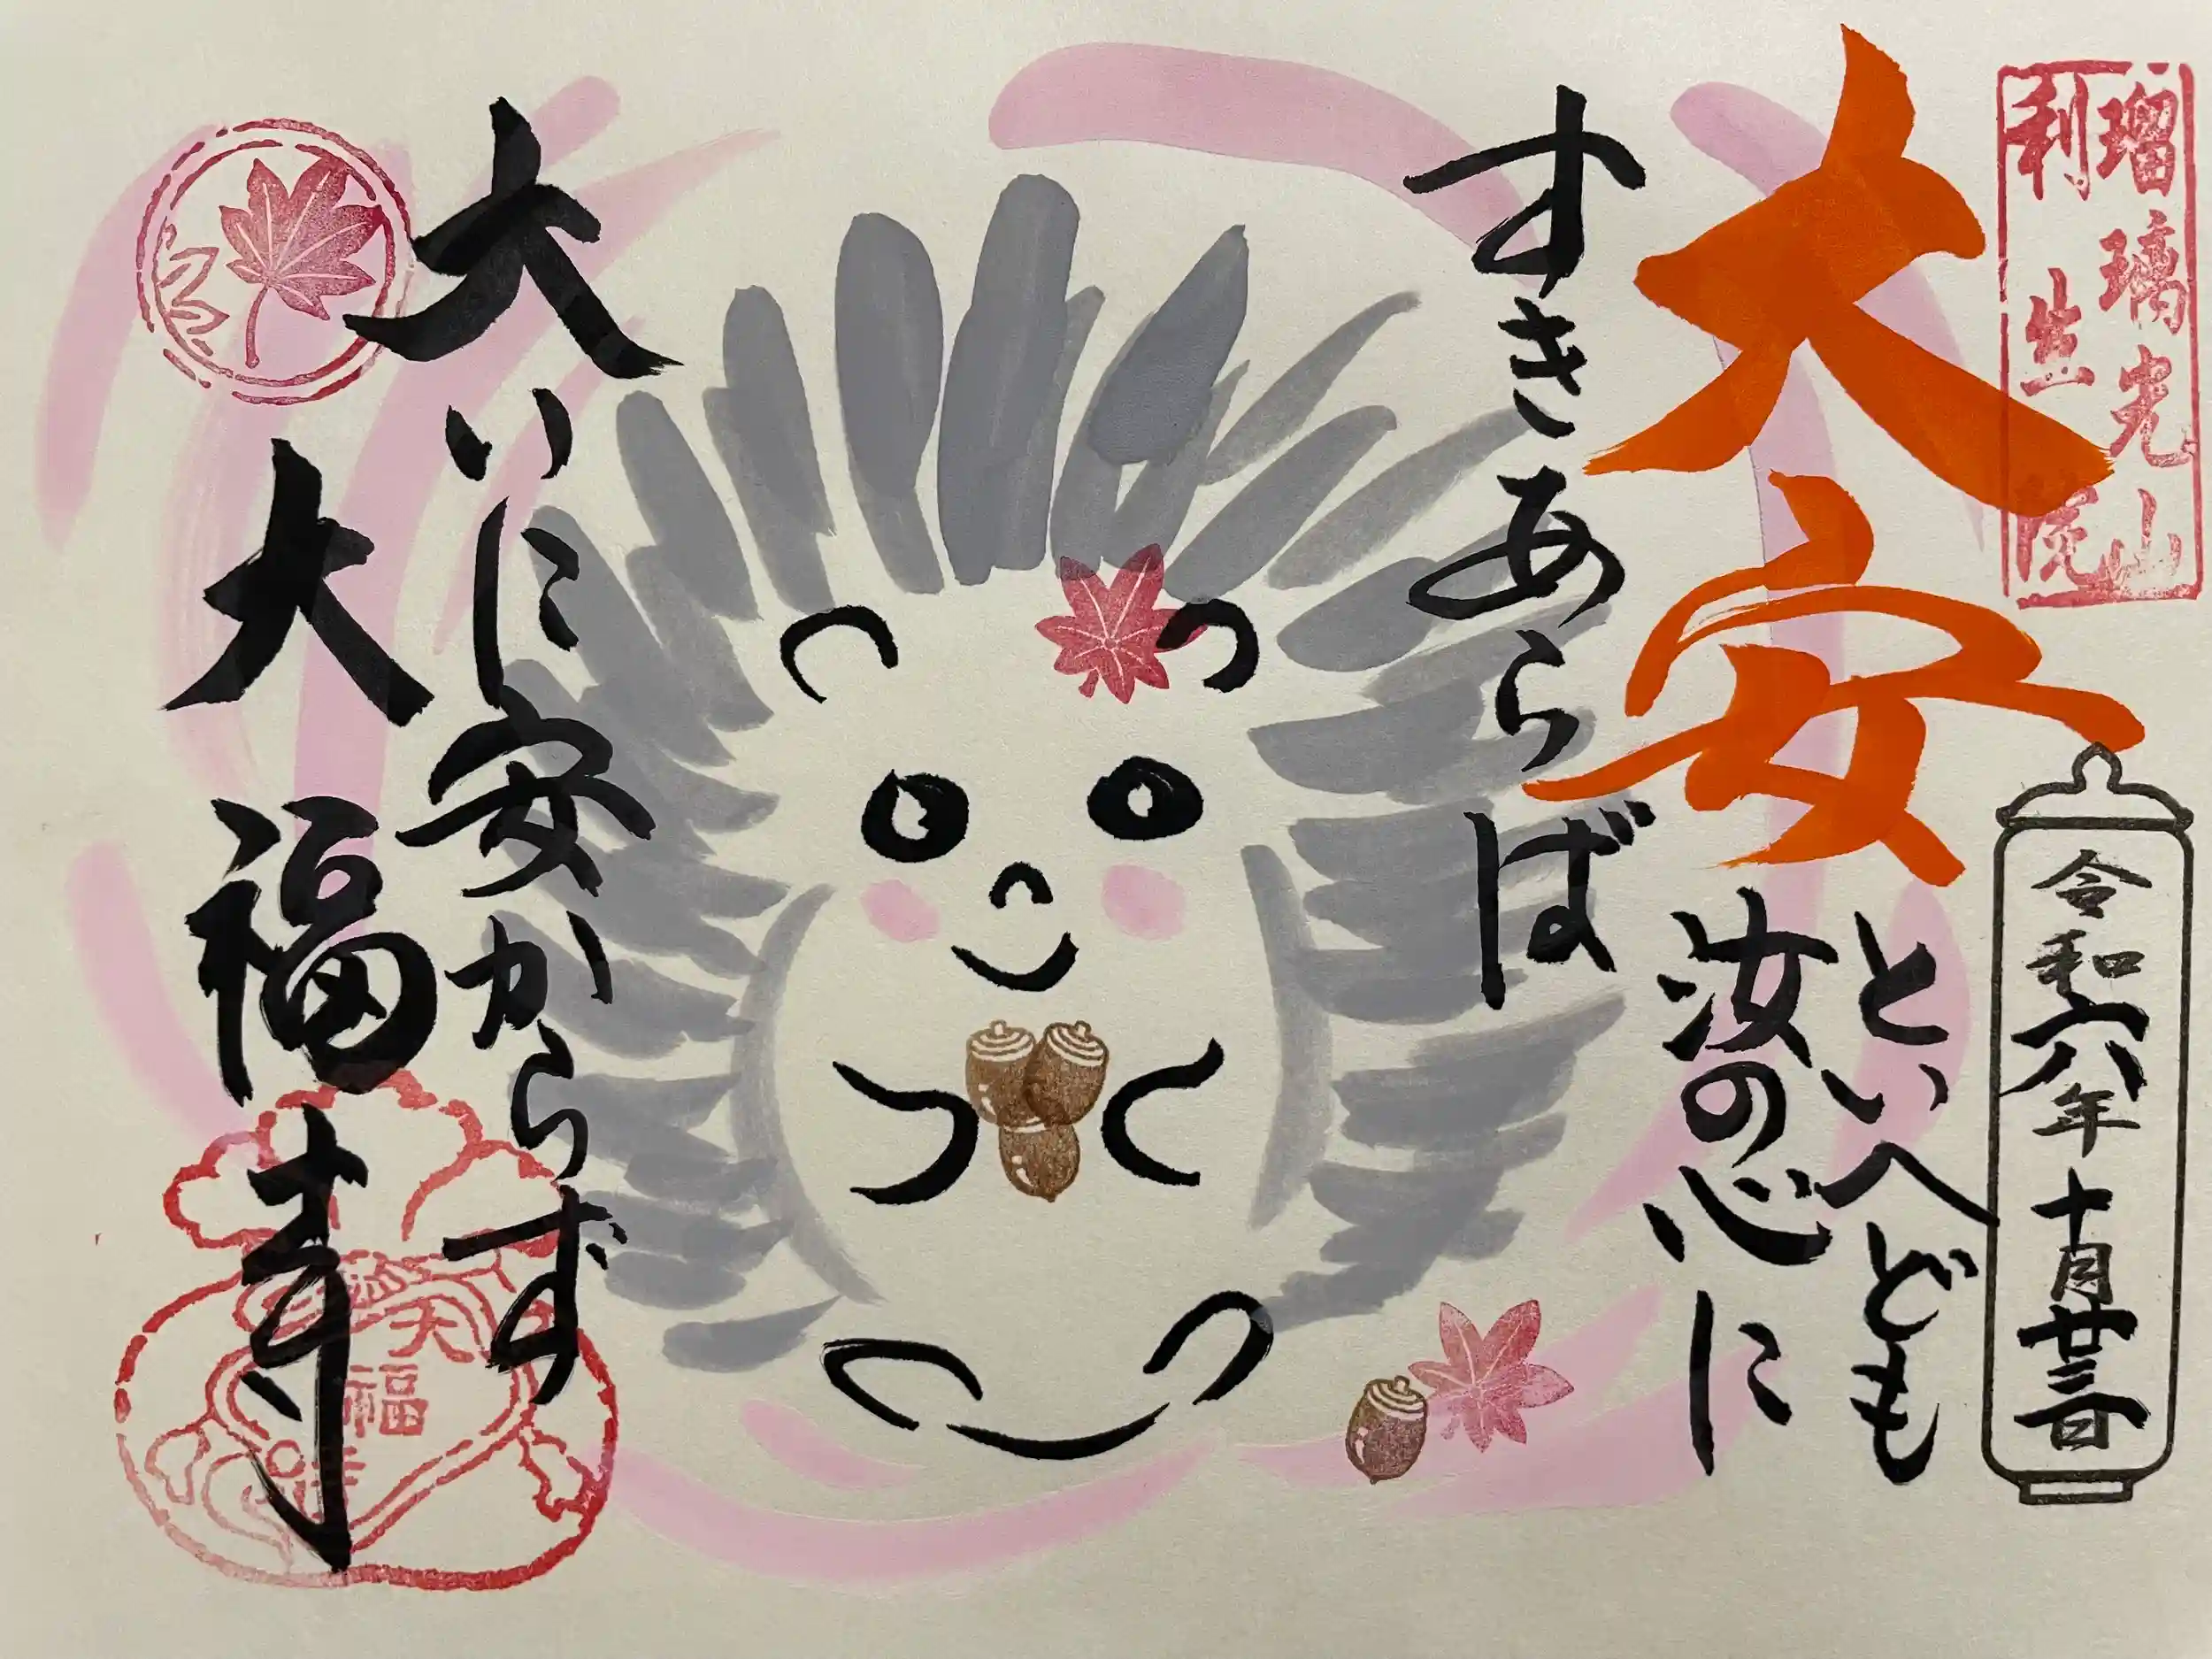 瑠璃光山
利生院
令和六年十月廿三日
大安
といへども
汝の心に
すきあらば
大いに安からず
大福寺
大福